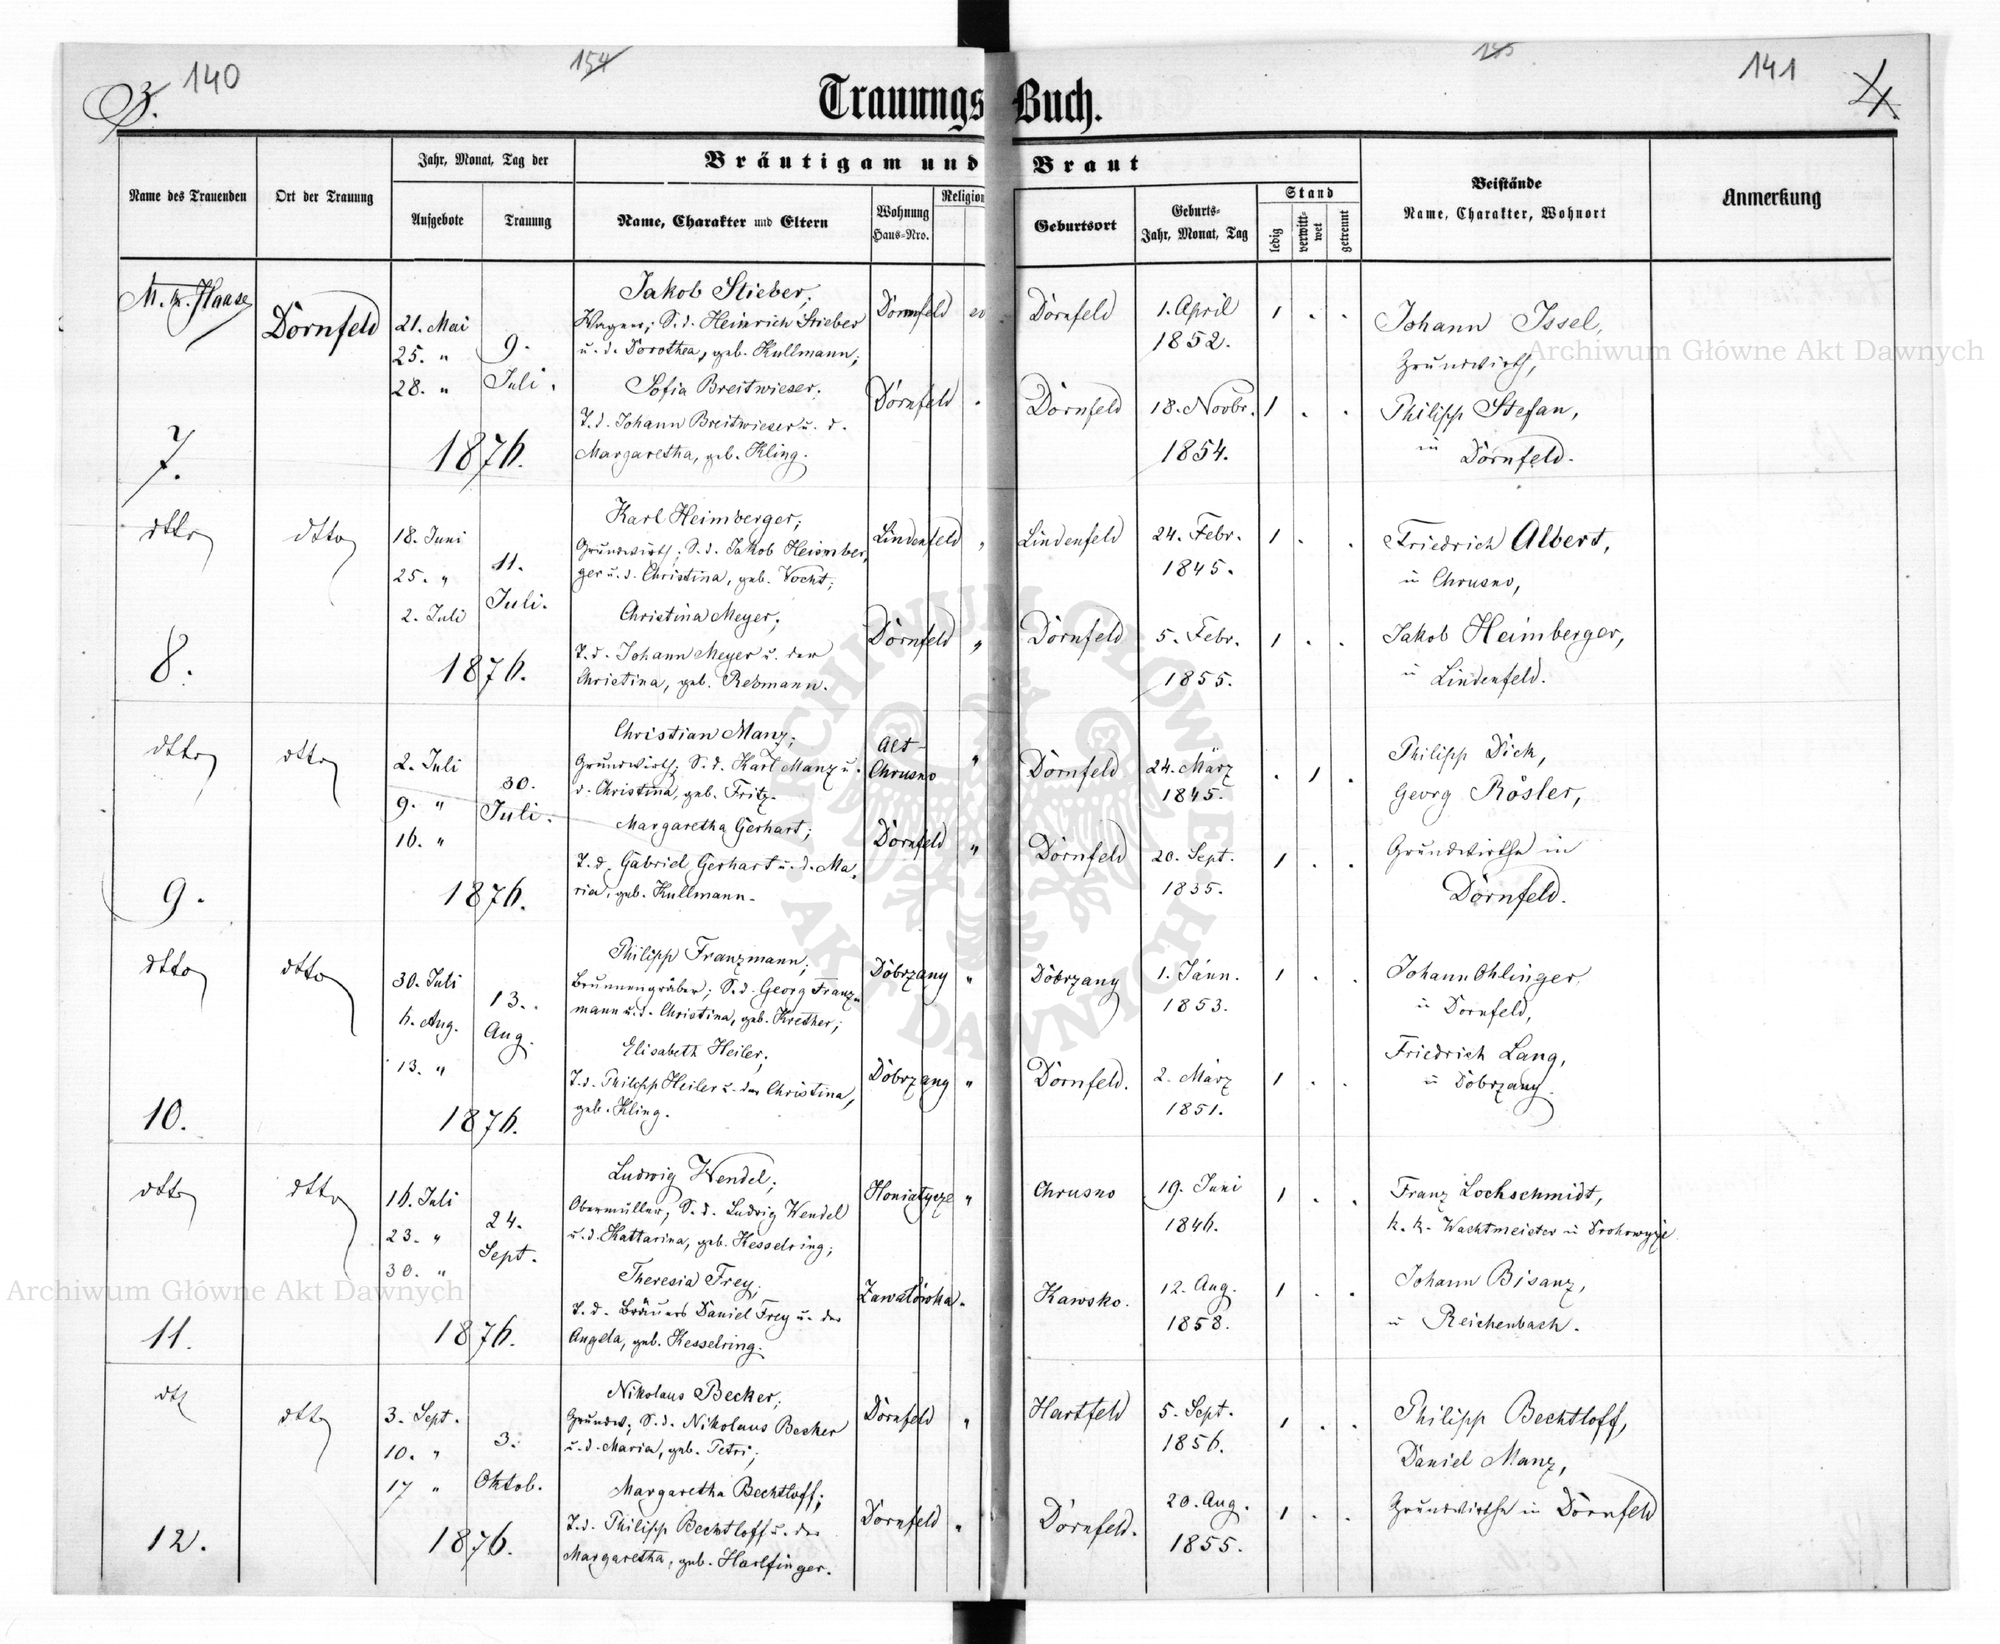 3. 140
154
145
141
4
Trauungs Buch.
Name des Trauenden
Ort der Trauung
Jahr, Monat, Tag der
Aufgebote
Trauung
Bräutigam und Braut
Name, Charakter und Eltern
Wohnung
Haus-Nro.
Religion
Geburtsort
Geburts-
Jahr, Monat, Tag
Stand
ledig
verwitt-
wet
getrennt
Beistände
Name, Charakter, Wohnort
Anmerkung
Haase
Dörnfeld
7.
21. Mai
25. "
28. "
9.
Juli.
1876.
Jakob Stieber,
Wagner; S. d. Heinrich Stieber
u. d. Dorothea, geb. Kullmann;
Dörnfeld
Dörnfeld
1. April
1852.
1 . .
Sofia Breitwieser,
T. d. Johann Breitwieser u. d.
Margaretha, geb. Kling.
Dörnfeld
Dörnfeld
18. Novbr.
1854.
1 . .
Johann Issel,
Grundwirth,
Philipp Stefan,
in Dörnfeld.
dtto
dtto
8.
18. Juni
25. "
2. Juli
11.
Juli.
1876.
Karl Heimberger;
Grundwirth; S. d. Jakob Heimber,
ger u. d. Christina, geb. Vocht;
Lindenfeld "
Lindenfeld
24. Febr.
1845.
1 . .
Christina Meyer;
T. d. Johann Meyer u. der
Christina, geb. Rebmann.
Dörnfeld "
Dörnfeld
5. Febr.
1855.
1 . .
Friedrich Albert,
in Chrusno,
Jakob Heimberger,
in Lindenfeld.
dtto
dtto
9.
2. Juli
9. "
16. "
30.
Juli.
1876.
Christian Manz;
Grundwirth; S. d. Karl Manz u.
d. Christina, geb. Fritz.
Alt-
Chrusno "
Dörnfeld
24. März
1845.
. 1 .
Margaretha Gerhart;
T. d. Gabriel Gerhart u. d. Ma,
ria, geb. Kullmann.
Dörnfeld "
Dörnfeld
20. Sept.
1835.
1 . .
Philipp Dick,
Georg Rösler,
Grundwirthe in
Dörnfeld.
dtto
dtto
10.
30. Juli
6. Aug.
13. "
13.
Aug.
1876.
Philipp Franzmann;
Brunnengräber; S. d. Georg Franz-
mann u. d. Christina, geb. Krether;
Dobrzany "
Dobrzany
1. Jänn.
1853.
1 . .
Elisabeth Heiler;
T. d. Philipp Heiler u. der Christina,
geb. Kling.
Dobrzany "
Dörnfeld.
2. März
1851.
1 . .
Johann Ohlinger,
in Dornfeld,
Friedrich Lang,
in Dobrzany.
dtto
dtto
11.
16. Juli
23. "
30. "
24.
Sept.
1876.
Ludwig Wendel;
Obermüller; S. d. Ludwig Wendel
u. d. Kattarina, geb. Kesselring;
Honiatycze "
Chrusno
19. Juni
1846.
1 . .
Theresia Frey,
T. d. Bräuers Daniel Frey u. der
Angela, geb. Kesselring.
Zawatówka.
Kawsko.
12. Aug.
1858.
1 . .
Franz Lochschmidt,
k. k. Wachtmeister in Drohowyże
Johann Bisanz,
in Reichenbach.
dtto
12.
3. Sept.
10. "
17 "
3.
Oktob.
1876.
Nikolaus Becker;
Grundw; S. d. Nikolaus Becker
u. d. Maria, geb. Petri;
Dörnfeld "
Hartfeld
5. Sept.
1856.
1 . .
Margaretha Bechtloff;
T. d. Philipp Bechtloff u. der
Margaretha, geb. Harlfinger.
Dörnfeld "
Dörnfeld.
20. Aug.
1855.
1 . .
Philipp Bechtloff,
Daniel Manz,
Grundwirthe in Dörnfeld
Archiwum Główne Akt Dawnych
Archiwum Główne Akt Dawnych
ARCHIWUM GŁÓWNE
AKT DAWNYCH